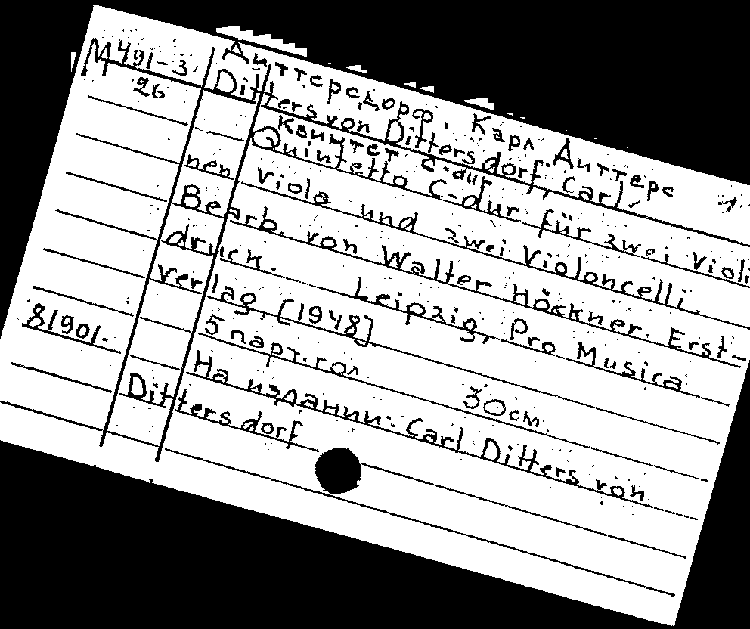 М 491-3
26
Диттерсдорф, Карл Диттерс
Ditters von Dittersdorf, Carl,
Квинтет C-dur
Quintetto C-dur für zwei Violi
nen Viola und zwei Violoncelli.
Bearb. von Walter Höckner. Erst-
druck. Leipzig, Pro Musica
verlag, [1948]
5 парт. гол 30 см.
81901.
На издании: Carl Ditters von
Dittersdorf